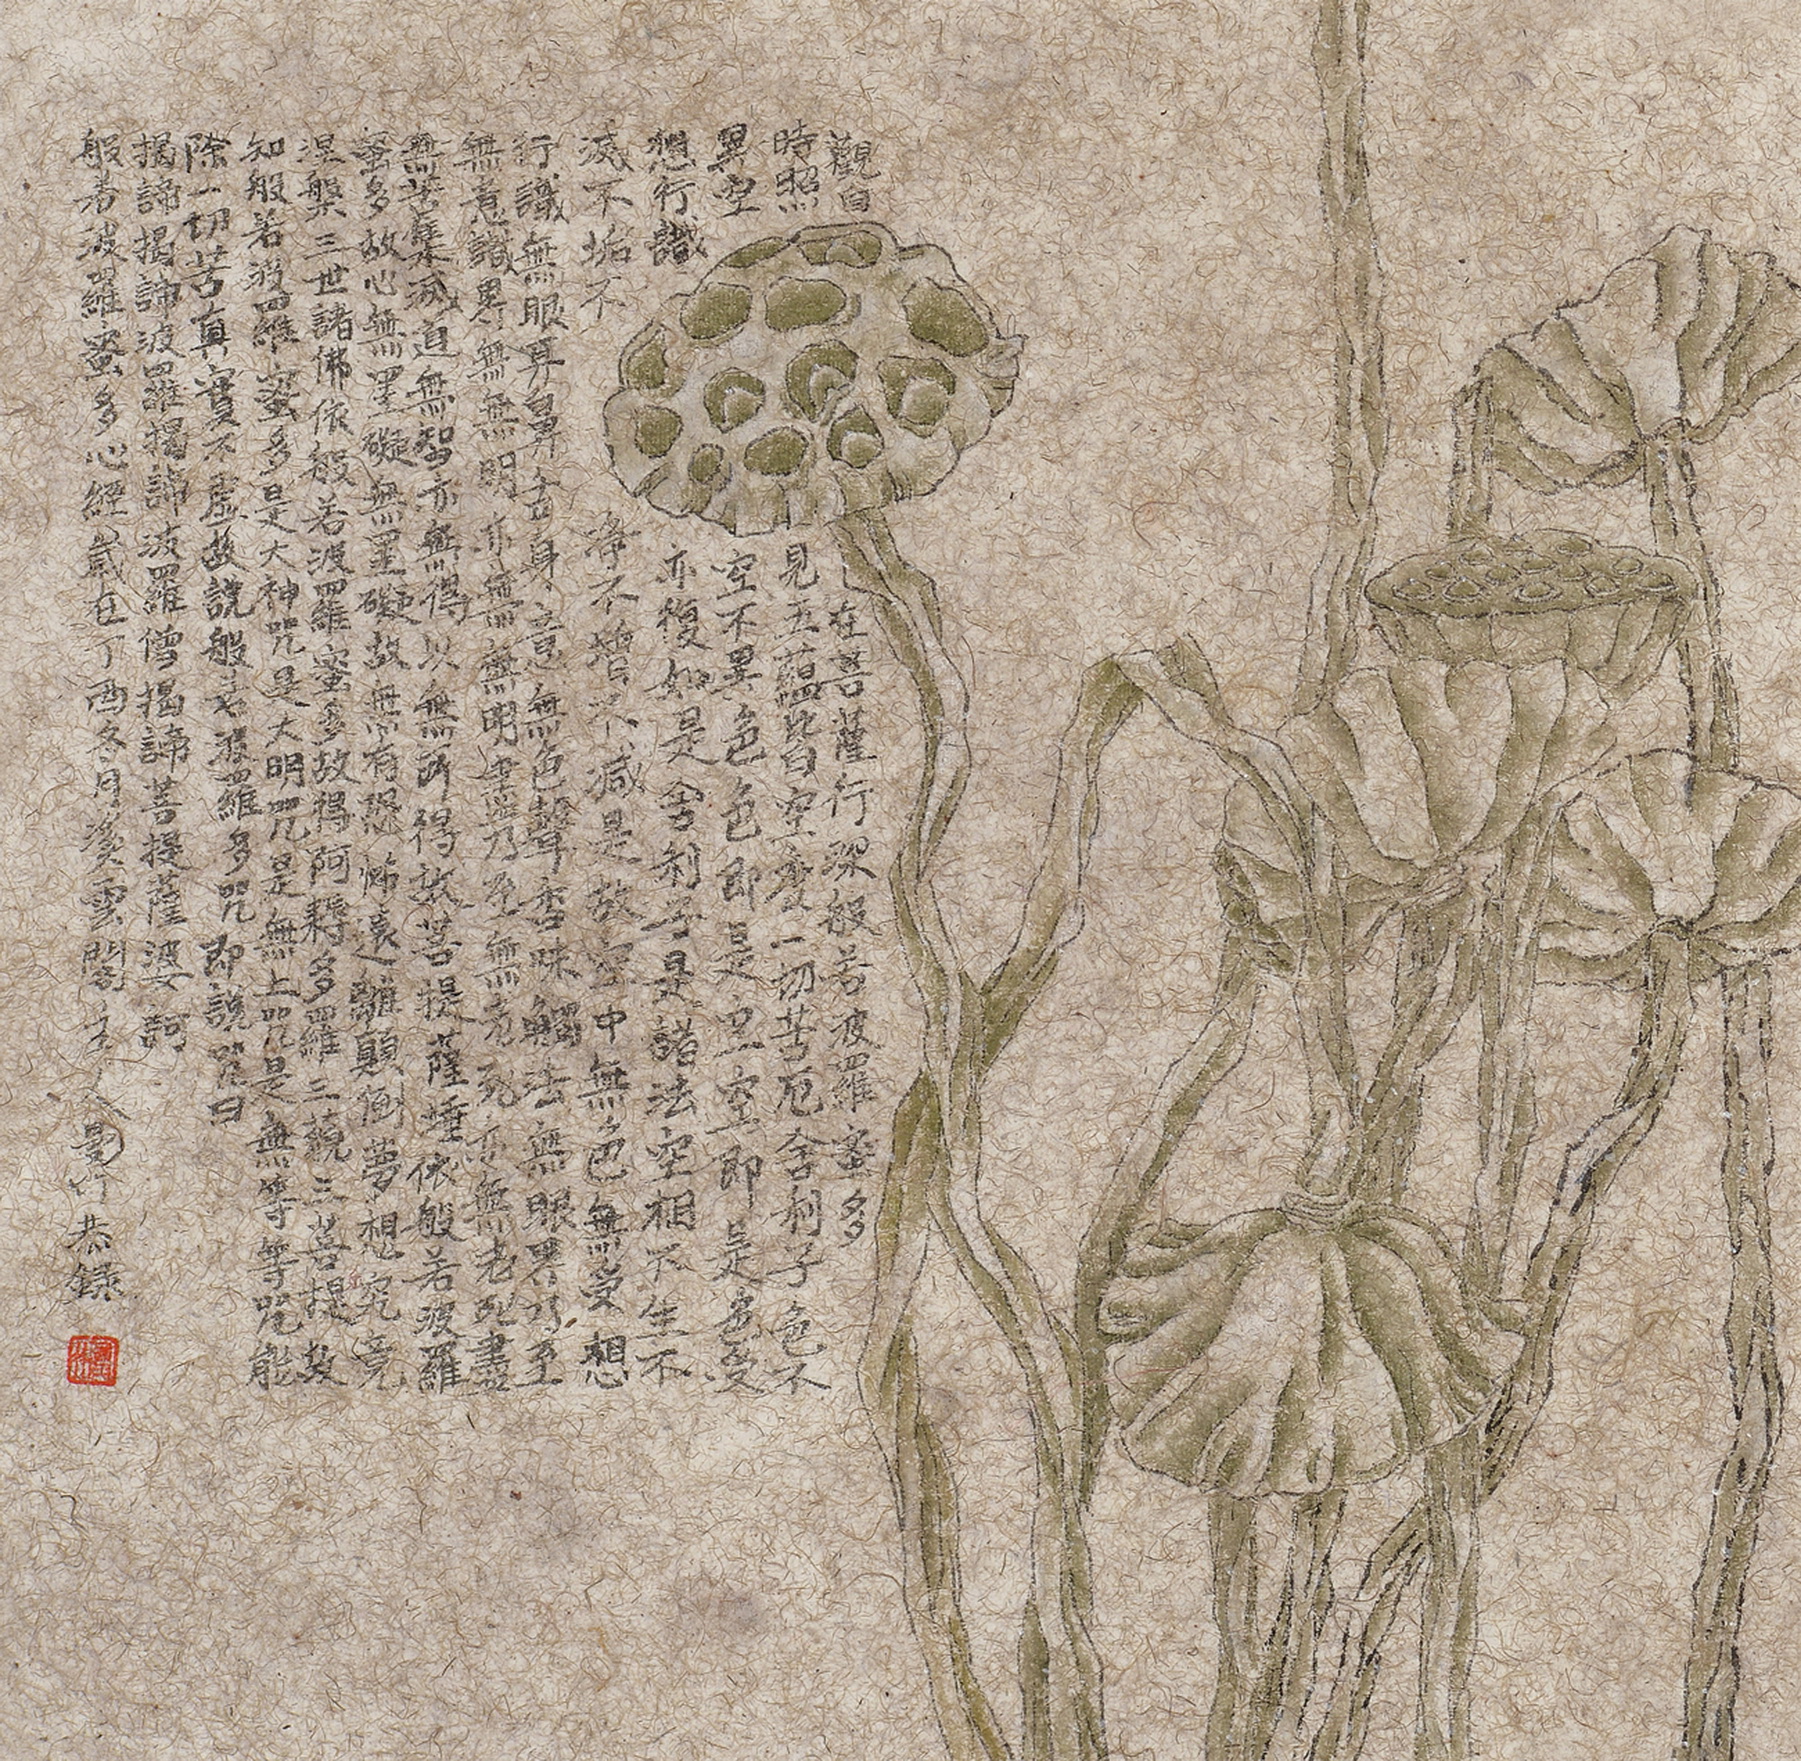 觀自在菩薩行深般若波羅蜜多
時照見五蘊皆空度一切苦厄舍利子色不
異空空不異色色即是空空即是色受
想行識亦復如是舍利子是諸法空相不生不
滅不垢不淨不增不減是故空中無色無受想
行識無眼耳鼻舌身意無色聲香味觸法無眼界乃至
無意識界無無明亦無無明盡乃至無老死亦無老死盡
無苦集滅道無智亦無得以無所得故菩提薩埵依般若波羅
蜜多故心無罣礙無罣礙故無有恐怖遠離顛倒夢想究竟
涅槃三世諸佛依般若波羅蜜多故得阿耨多羅三藐三菩提故
知般若波羅蜜多是大神咒是大明咒是無上咒是無等等咒能
除一切苦真實不虛故說般若波羅多咒即說咒曰
揭諦揭諦波羅揭諦波羅僧揭諦菩提薩婆訶
般若波羅蜜多心經歲在丁酉冬月溪雲閣主人曼竹恭錄